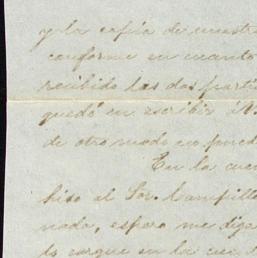 y la copia de nuestr
conforme en cuanto
recibido las dos parti
quedó en escribir á V.
de otro modo no pued
En la cuen
hizo al Sor. Campillo
nada, espero me diga
lo cargue en la cuent